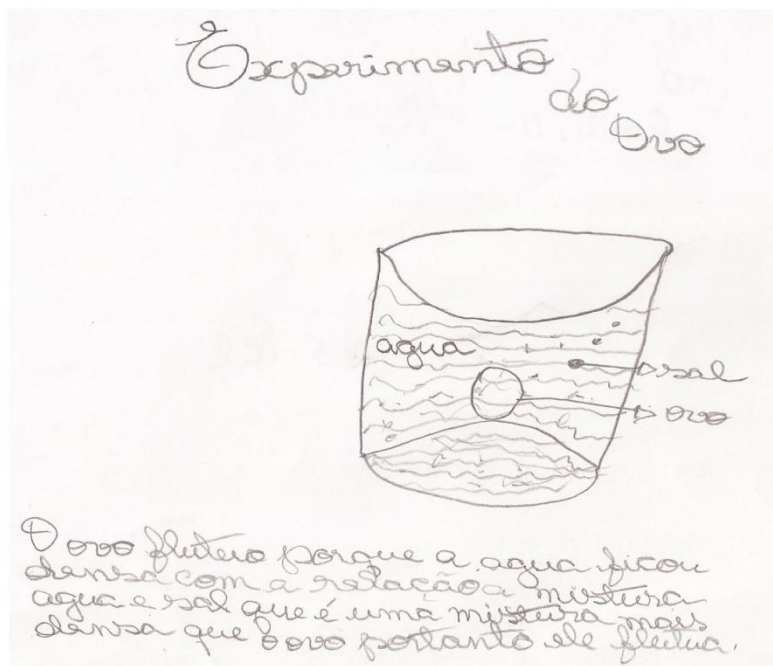 Experimento
do
Ovo
agua
sal
ovo
O ovo fluteio porque a agua ficou
densa com a relação a mistura
agua e sal que é uma mistura mais
densa que o ovo portanto ele fleitua.